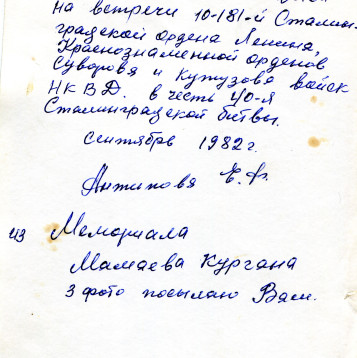 на встречи 10-181-й Сталин-
градской ордена Ленина,
Краснознаменной орденов
Суворова и Кутузова войск
НКВД. в честь 40-я
Сталинградской битвы.
сентябрь 1982 г.
Антипова Е.Ф.
из Мемориала
Мамаева Кургана
3 фото посылаю Вам.